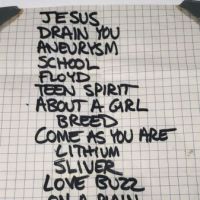 JESUS
DRAIN YOU
ANEURYSM
SCHOOL
FLOYD
TEEN SPIRIT
ABOUT A GIRL
BREED
COME AS YOU ARE
LITHIUM
SLIVER
LOVE BUZZ
ON A PLAIN